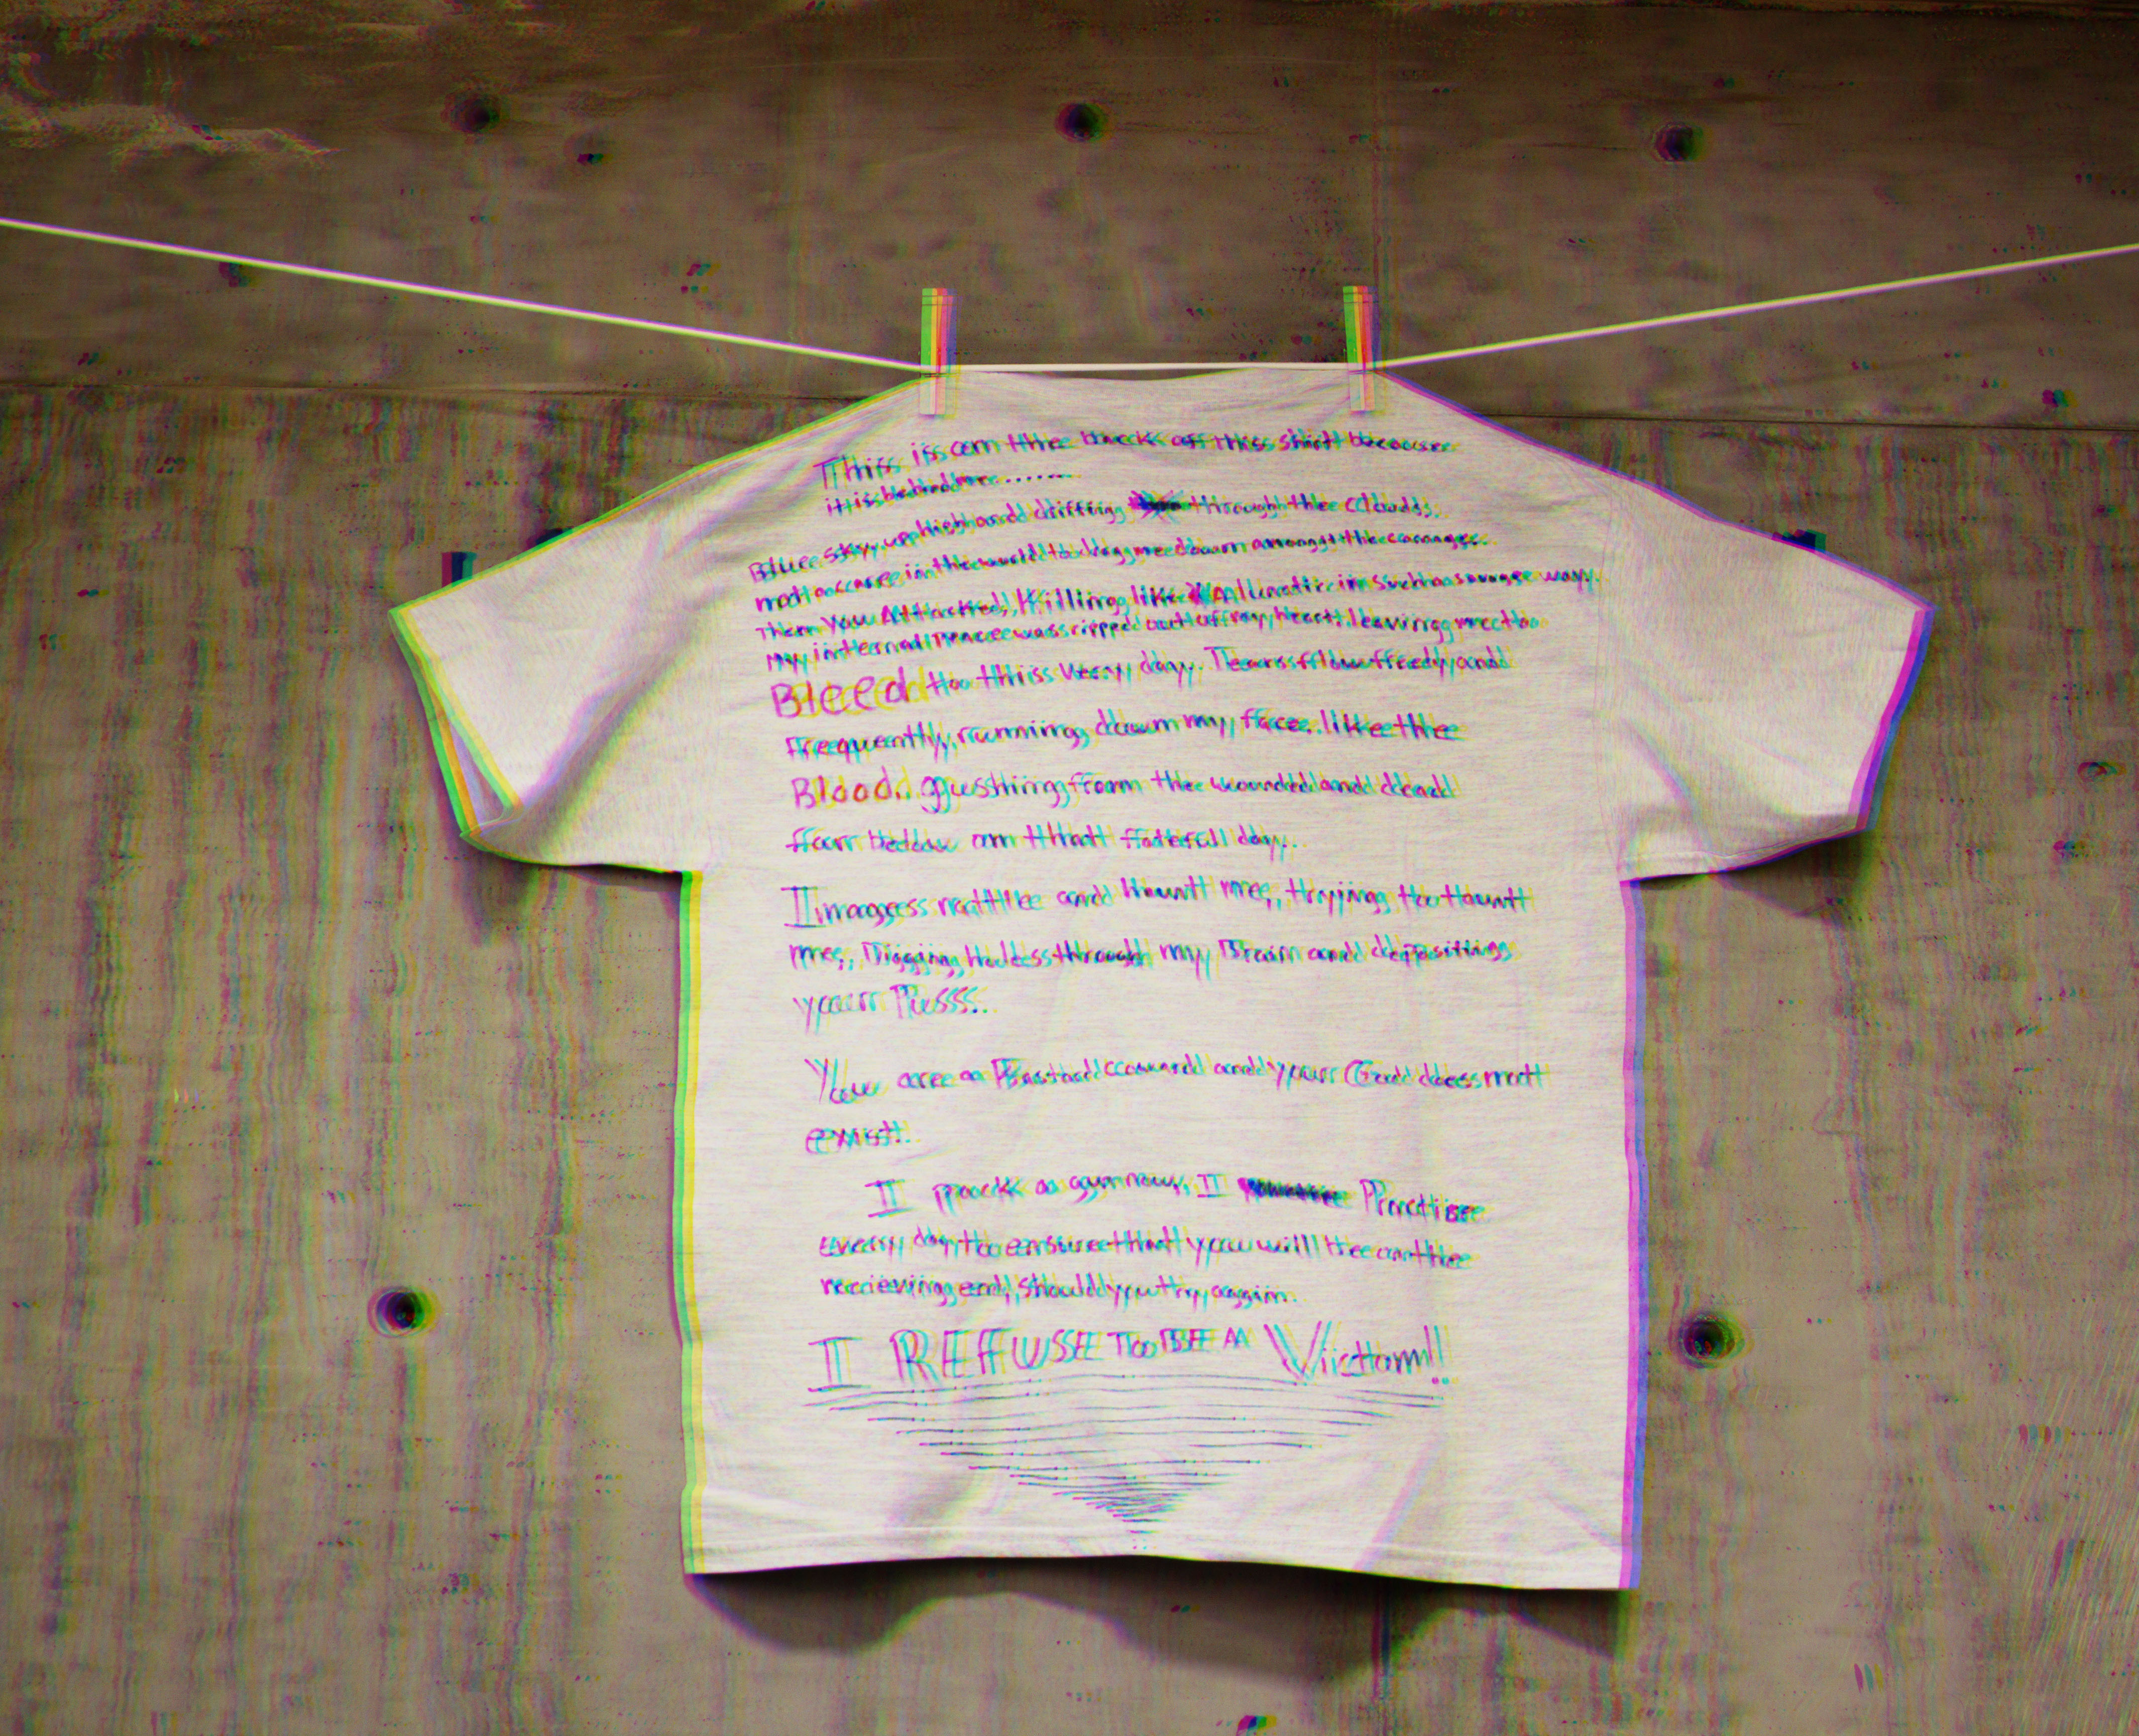 This is on the back of this shirt because
it is behind me.......
Blue sky, up high and drifting through the Clouds.
not a care in the world to drag me down amongst the
Then You Attacked, Killing like A lunatic in such a savage way.
My internal Peace was ripped out of my heart, leaving me to
Bleed to this very day. Tears flow freely and
frequently, running down my face, like the
Blood, gushing from the wounded and dead
far below on that fatefull day.
Images rattle and haunt me, trying to taunt
me, Digging Holes through my Brain and depositing
your Puss.
You are a Bastard coward and your God does not
exist!
I pack a gun now, I Practise
every day, to ensure that you will be on the
recieving end, should you try aggin.
I REFUSE To BE A Victom!!